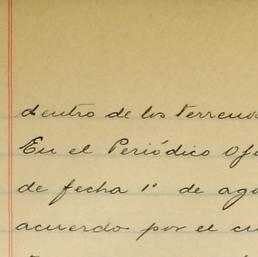 dentro de los terrenos
En el Periódico Ofi
de fecha 1º de ago
acuerdo por el cu